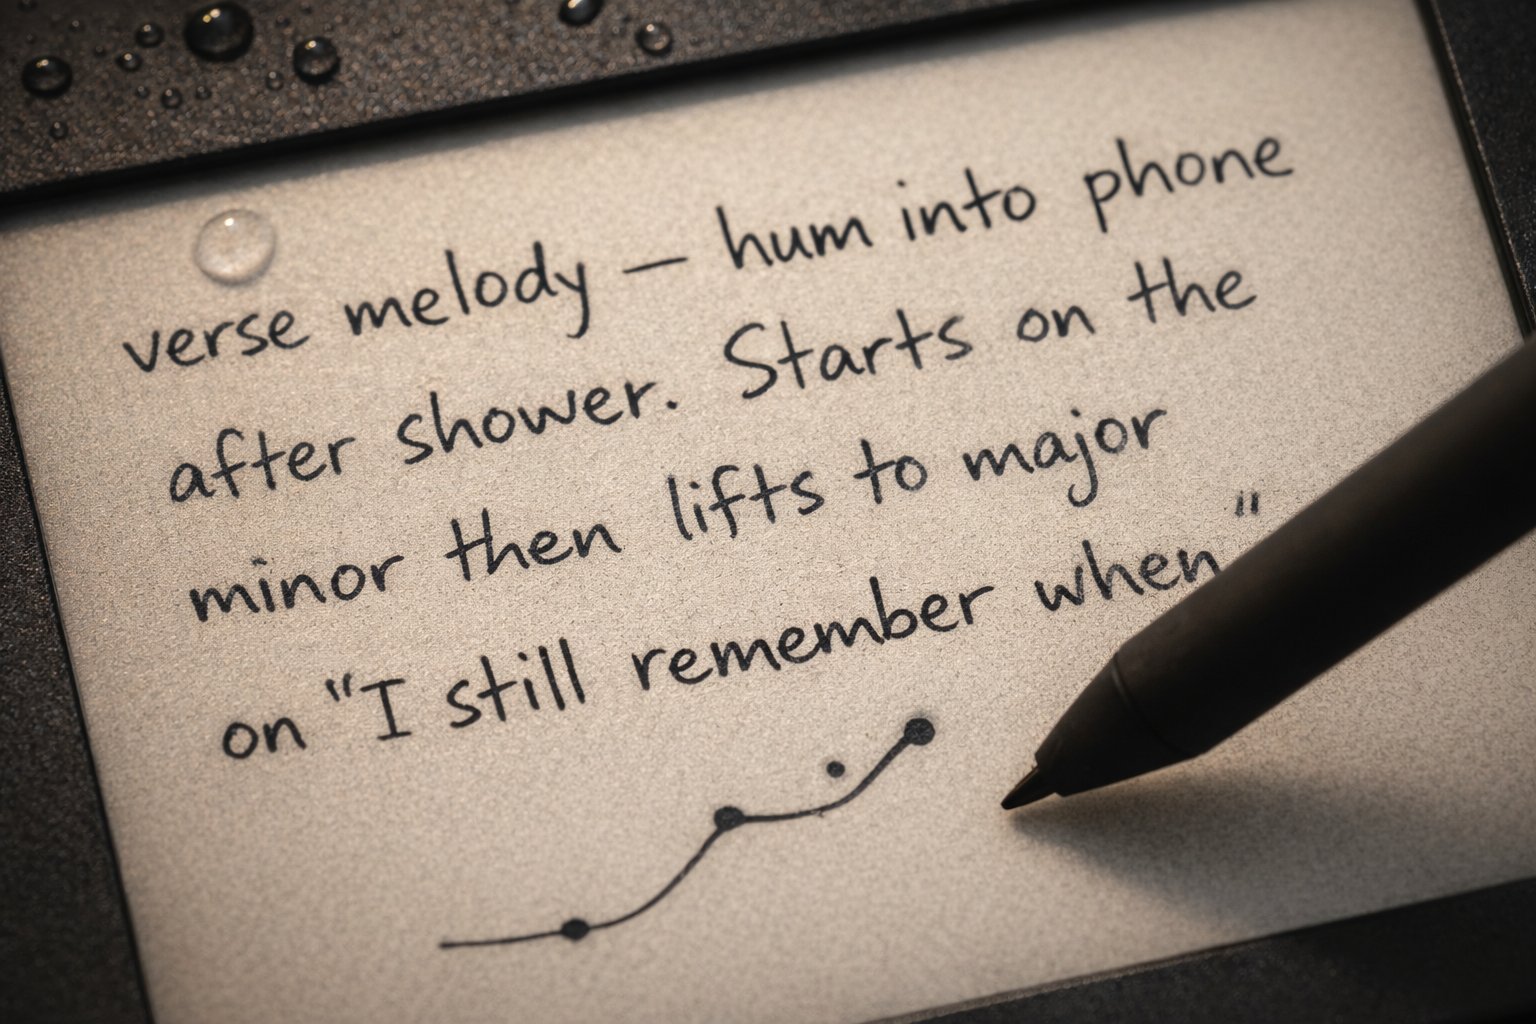 verse melody — hum into phone
after shower. Starts on the
minor then lifts to major
on "I still remember when"